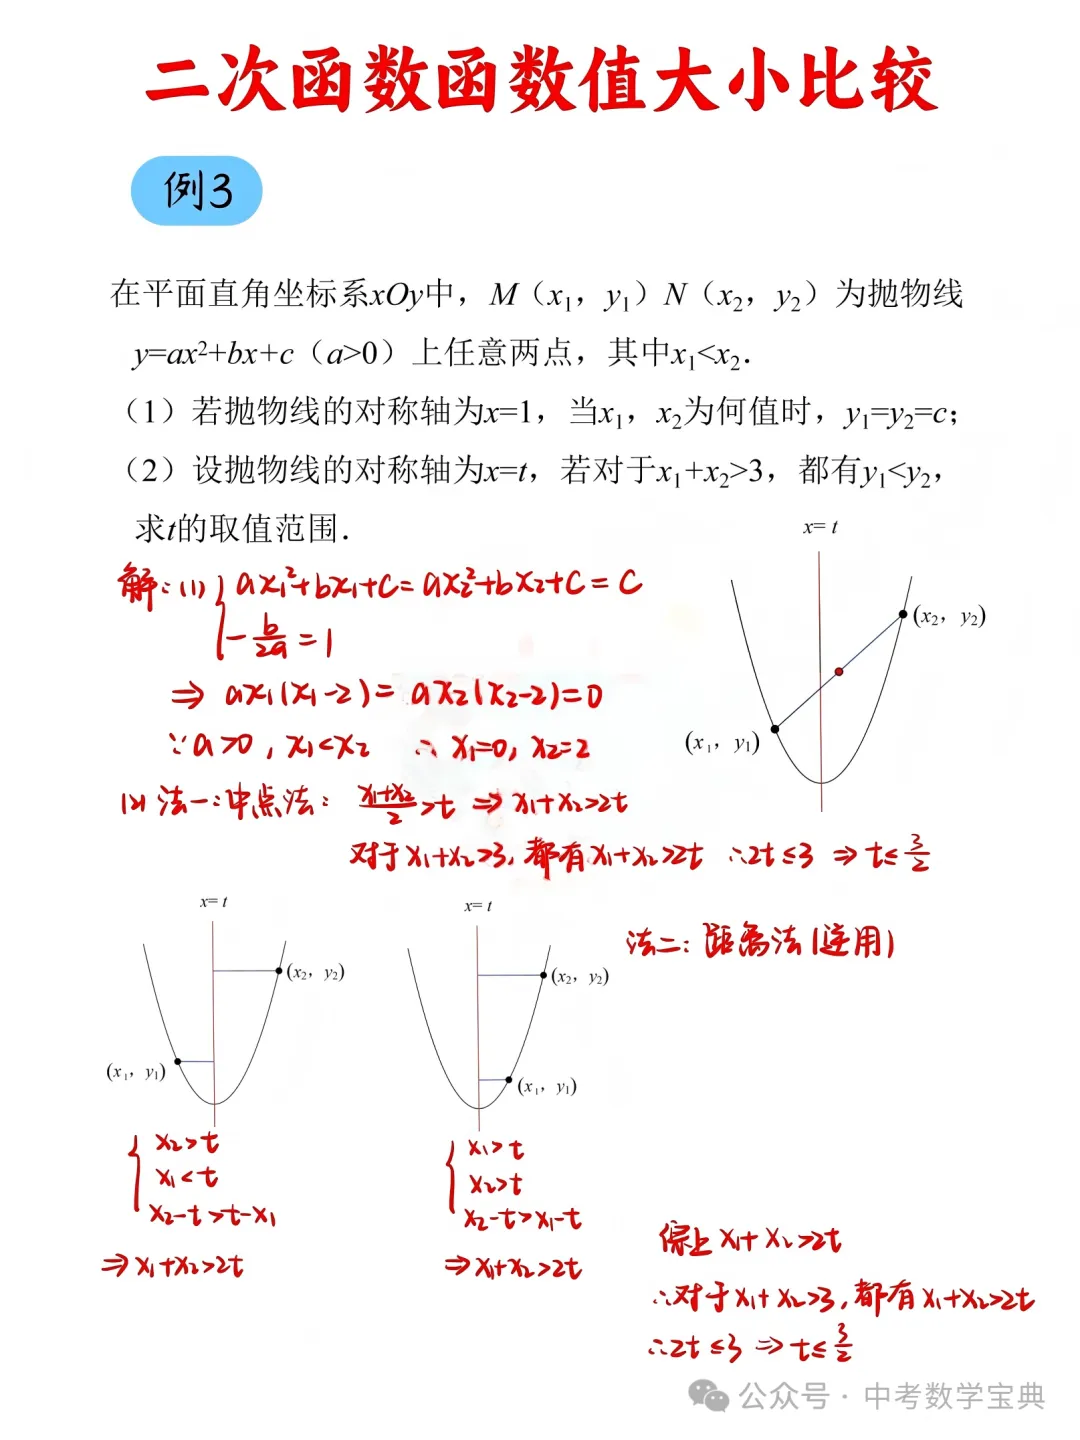 二次函数函数值大小比较
例3
在平面直角坐标系xOy中，M（x₁，y₁）N（x₂，y₂）为抛物线
y=ax²+bx+c（a>0）上任意两点，其中x₁<x₂．
（1）若抛物线的对称轴为x=1，当x₁，x₂为何值时，y₁=y₂=c；
（2）设抛物线的对称轴为x=t，若对于x₁+x₂>3，都有y₁<y₂，
求t的取值范围．
x= t
(x₂，y₂)
(x₁，y₁)
解：(1) { ax₁²+bx₁+c=ax₂²+bx₂+c=c
-b/2a=1
⇒ ax₁(x₁-2)=ax₂(x₂-2)=0
∵a>0，x₁<x₂ ∴x₁=0，x₂=2
(2) 法一：中点法： (x₁+x₂)/2>t ⇒ x₁+x₂>2t
对于x₁+x₂>3，都有x₁+x₂>2t ∴2t≤3 ⇒ t≤3/2
x= t
(x₂，y₂)
(x₁，y₁)
x= t
(x₂，y₂)
(x₁，y₁)
法二：距离法(逆用)
{ x₂>t
x₁<t
x₂-t>t-x₁
⇒x₁+x₂>2t
{ x₁>t
x₂>t
x₂-t>x₁-t
⇒x₁+x₂>2t
综上x₁+x₂>2t
∴对于x₁+x₂>3，都有x₁+x₂>2t
∴2t≤3 ⇒ t≤3/2
公众号 · 中考数学宝典